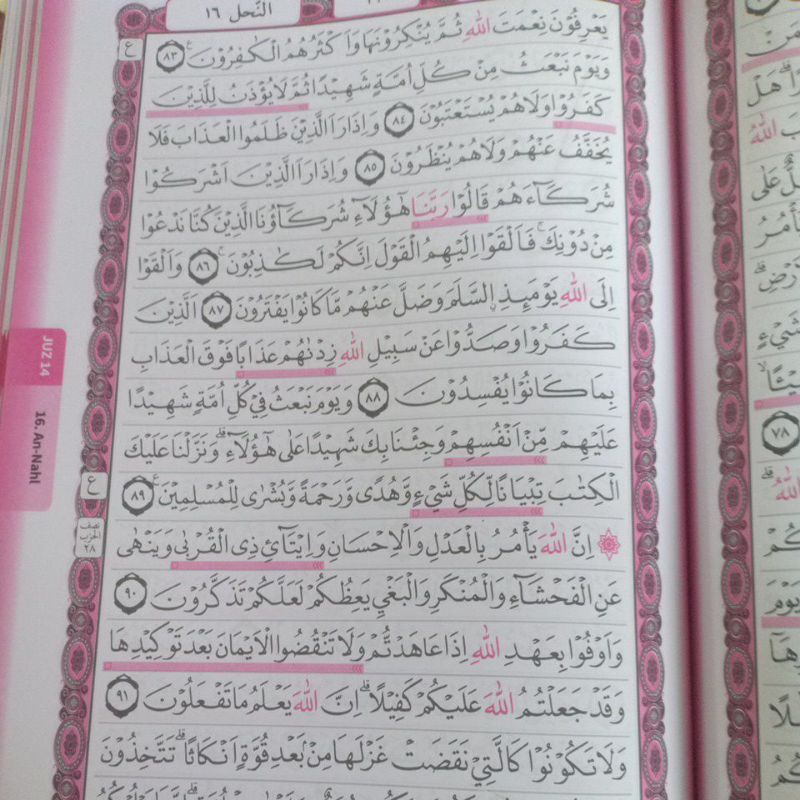 النّحل ١٦
يَعْرِفُوْنَ نِعْمَتَ اللّٰهِ ثُمَّ يُنْكِرُوْنَهَا وَاَكْثَرُهُمُ الْكٰفِرُوْنَ ࣖ ٨٣
ع
وَيَوْمَ نَبْعَثُ مِنْ كُلِّ اُمَّةٍ شَهِيْدًا ثُمَّ لَا يُؤْذَنُ لِلَّذِيْنَ
كَفَرُوْا وَلَا هُمْ يُسْتَعْتَبُوْنَ ٨٤ وَاِذَا رَاَ الَّذِيْنَ ظَلَمُوا الْعَذَابَ فَلَا
يُخَفَّفُ عَنْهُمْ وَلَا هُمْ يُنْظَرُوْنَ ٨٥ وَاِذَا رَاَ الَّذِيْنَ اَشْرَكُوْا
شُرَكَاۤءَهُمْ قَالُوْا رَبَّنَا هٰٓؤُلَاۤءِ شُرَكَاۤؤُنَا الَّذِيْنَ كُنَّا نَدْعُوْا
مِنْ دُوْنِكَۚ فَاَلْقَوْا اِلَيْهِمُ الْقَوْلَ اِنَّكُمْ لَكٰذِبُوْنَۚ ٨٦ وَاَلْقَوْا
اِلَى اللّٰهِ يَوْمَىِٕذِ ِۨالسَّلَمَ وَضَلَّ عَنْهُمْ مَّا كَانُوْا يَفْتَرُوْنَ ٨٧ اَلَّذِيْنَ
كَفَرُوْا وَصَدُّوْا عَنْ سَبِيْلِ اللّٰهِ زِدْنٰهُمْ عَذَابًا فَوْقَ الْعَذَابِ
بِمَا كَانُوْا يُفْسِدُوْنَ ٨٨ وَيَوْمَ نَبْعَثُ فِيْ كُلِّ اُمَّةٍ شَهِيْدًا
عَلَيْهِمْ مِّنْ اَنْفُسِهِمْ وَجِئْنَا بِكَ شَهِيْدًا عَلٰى هٰٓؤُلَاۤءِۗ وَنَزَّلْنَا عَلَيْكَ
الْكِتٰبَ تِبْيَانًا لِّكُلِّ شَيْءٍ وَّهُدًى وَّرَحْمَةً وَّبُشْرٰى لِلْمُسْلِمِيْنَ ࣖ ٨٩
ع
۞ اِنَّ اللّٰهَ يَأْمُرُ بِالْعَدْلِ وَالْاِحْسَانِ وَاِيْتَاۤئِ ذِى الْقُرْبٰى وَيَنْهٰى
نصف الحزب ٢٨
عَنِ الْفَحْشَاۤءِ وَالْمُنْكَرِ وَالْبَغْيِ يَعِظُكُمْ لَعَلَّكُمْ تَذَكَّرُوْنَ ٩٠
وَاَوْفُوْا بِعَهْدِ اللّٰهِ اِذَا عَاهَدْتُّمْ وَلَا تَنْقُضُوا الْاَيْمَانَ بَعْدَ تَوْكِيْدِهَا
وَقَدْ جَعَلْتُمُ اللّٰهَ عَلَيْكُمْ كَفِيْلًاۗ اِنَّ اللّٰهَ يَعْلَمُ مَا تَفْعَلُوْنَ ٩١
وَلَا تَكُوْنُوْا كَالَّتِيْ نَقَضَتْ غَزْلَهَا مِنْۢ بَعْدِ قُوَّةٍ اَنْكَاثًاۗ تَتَّخِذُوْنَ
JUZ 14
16. An-Nahl
هَلْ
اللّٰهِ
عَلٰى
٧٨
اللّٰهُ
يَوْمَ